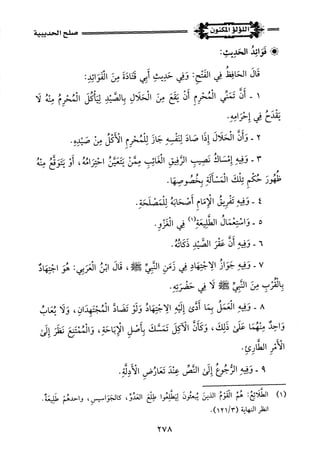 صلح الحديبية
اللؤلؤ المكنون
فَوَائِدُ الحَدِيثِ:
قَالَ الحَافِظُ فِي الفَتْحِ: وَفِي حَدِيثِ أَبِي قَتَادَةَ مِنَ الْفَوَائِدِ:
١ - أَنَّ تَمَنِّي الْمُحْرِمِ أَنْ يَقَعَ مِنَ الْحَلَالِ بِالصَّيْدِ لِيَأْكُلَ الْمُحْرِمُ مِنْهُ لَا
يَقْدَحُ فِي إِحْرَامِهِ.
٢ - وَأَنَّ الْحَلَالَ إِذَا صَادَ لِنَفْسِهِ جَازَ لِلْمُحْرِمِ الْأَكْلُ مِنْ صَيْدِهِ.
٣ - وَفِيهِ إِمْسَاكُ نَصِيبِ الرَّفِيقِ الْغَائِبِ مِمَّنْ يَتَعَيَّنُ احْتِرَامُهُ، أَوْ يَتَوَقَّعُ مِنْهُ
ظُهُورَ حُكْمِ تِلْكَ الْمَسْأَلَةِ بِخُصُوصِهَا.
٤ - وَفِيهِ تَفْرِيقُ الْإِمَامِ أَصْحَابَهُ لِلْمَصْلَحَةِ.
٥ - وَاسْتِعْمَالُ الطَّلِيعَةِ(١) فِي الْغَزْوِ.
٦ - وَفِيهِ أَنَّ عَقْرَ الصَّيْدِ ذَكَاتُهُ.
٧ - وَفِيهِ جَوَازُ الِاجْتِهَادِ فِي زَمَنِ النَّبِيِّ ﷺ، قَالَ ابْنُ الْعَرَبِيِّ: هُوَ اجْتِهَادٌ
بِالْقُرْبِ مِنَ النَّبِيِّ ﷺ لَا فِي حَضْرَتِهِ.
٨ - وَفِيهِ الْعَمَلُ بِمَا أَدَّى إِلَيْهِ الِاجْتِهَادُ وَلَوْ تَضَادَّ الْمُجْتَهِدَانِ، وَلَا يُعَابُ
وَاحِدٌ مِنْهُمَا عَلَى ذَلِكَ، وَكَأَنَّ الْآكِلَ تَمَسَّكَ بِأَصْلِ الْإِبَاحَةِ، وَالْمُمْتَنِعَ نَظَرَ إِلَى
الْأَمْرِ الطَّارِئِ.
٩ - وَفِيهِ الرُّجُوعُ إِلَى النَّصِّ عِنْدَ تَعَارُضِ الْأَدِلَّةِ.
(١) الطَّلَائِعُ: هُمُ القَوْمُ الذين يُبعثُونَ لِيَطَّلِعُوا طِلْعَ العَدُوِّ، كالجَوَاسِيسِ، واحدهم طَلِيعَة.
انظر النهاية (١٢١/٣).
٢٧٨